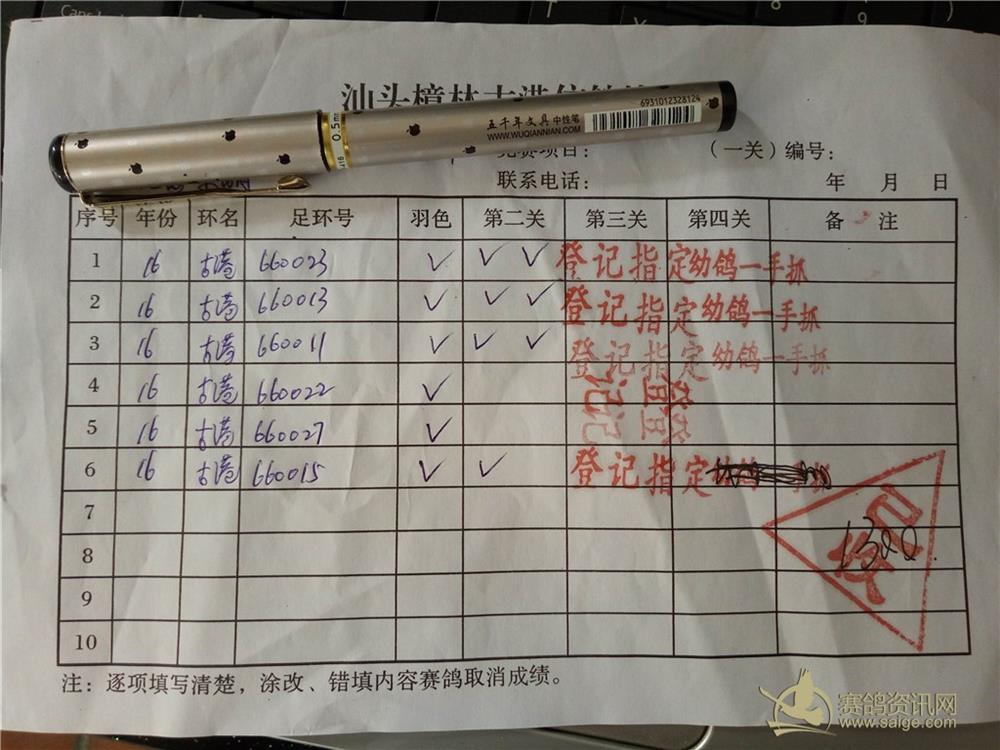 汕头樟林古港
6931012328124
0.5m
五千年文具 中性笔
WWW.WUQIANNIAN.COM
竞赛项目: (一关)编号:
联系电话: 年 月 日
序号 年份 环名 足环号 羽色 第二关 第三关 第四关 备 注
1 16 古港 660023 ✓ ✓ ✓ 登记指定幼鸽一手抓
2 16 古港 660013 ✓ ✓ ✓ 登记指定幼鸽一手抓
3 16 古港 660011 ✓ ✓ ✓ 登记指定幼鸽一手抓
4 16 古港 660022 ✓
5 16 古港 660027 ✓
6 16 古港 660015 ✓ ✓ 登记指定
7
8 1300.
9
10
注:逐项填写清楚,涂改、错填内容赛鸽取消成绩。
赛鸽资讯网
www.saige.com